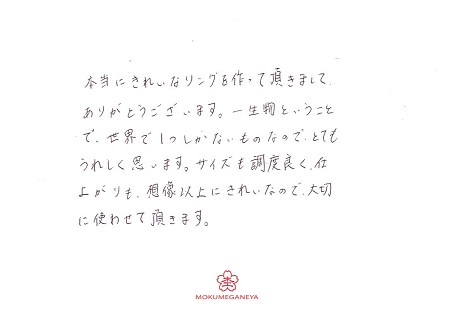 本当にきれいなリングを作って頂きまして、
ありがとうございます。一生物ということ
で、世界で1つしかないものなので、とても
うれしく思います。サイズも調度良く、仕
上がりも、想像以上にきれいなので、大切
に使わせて頂きます。
MOKUMEGANEYA